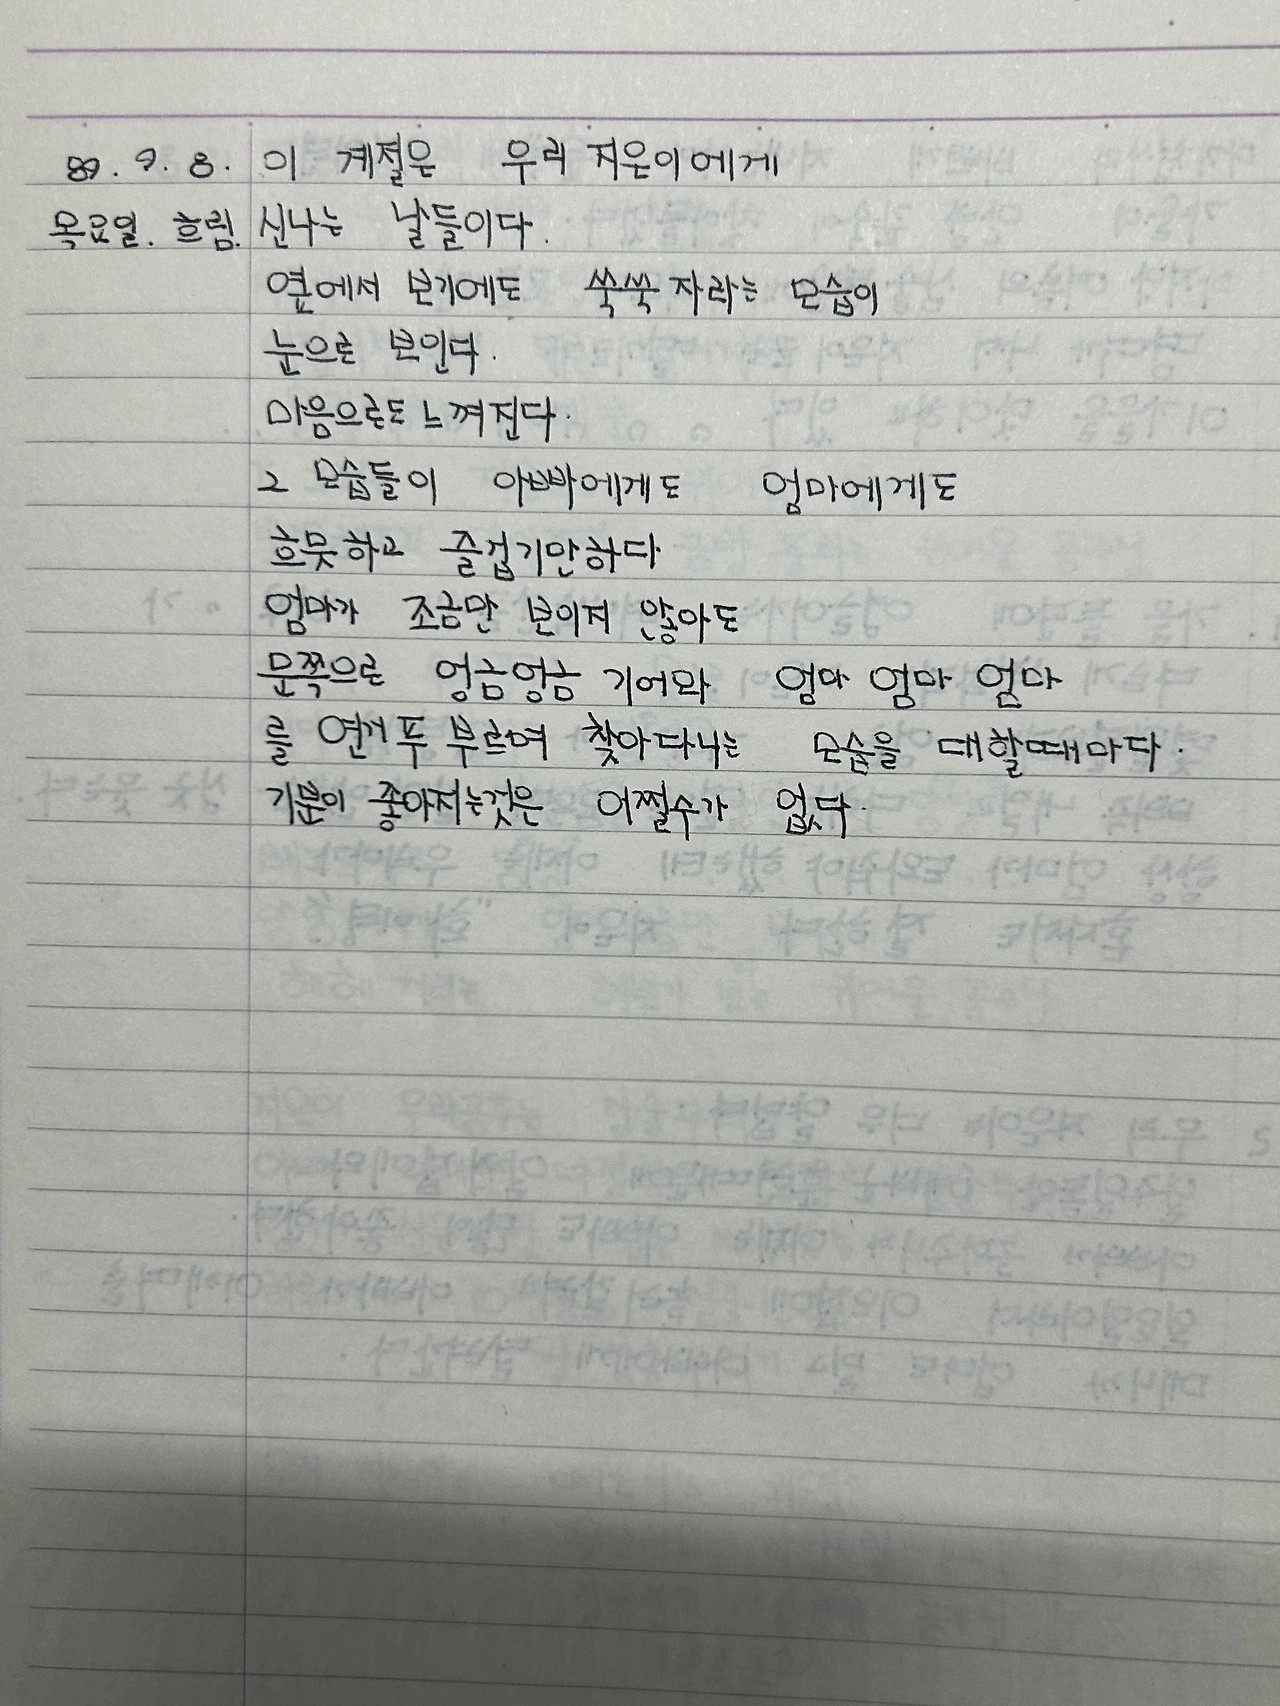 89. 9. 8. 이 계절은 우리 지은이에게
목요일. 흐림. 신나는 날들이다.
옆에서 보기에도 쑥쑥 자라는 모습이
눈으로 보인다.
마음으로도 느껴진다.
그 모습들이 아빠에게도 엄마에게도
흐뭇하고 즐겁기만하다
엄마가 조금만 보이지 않아도
문쪽으로 엉금엉금 기어와 엄마 엄마 엄마
를 연거푸 부르며 찾아다니는 모습을 대할때마다.
기분이 좋아지는것은 어쩔수가 없다.